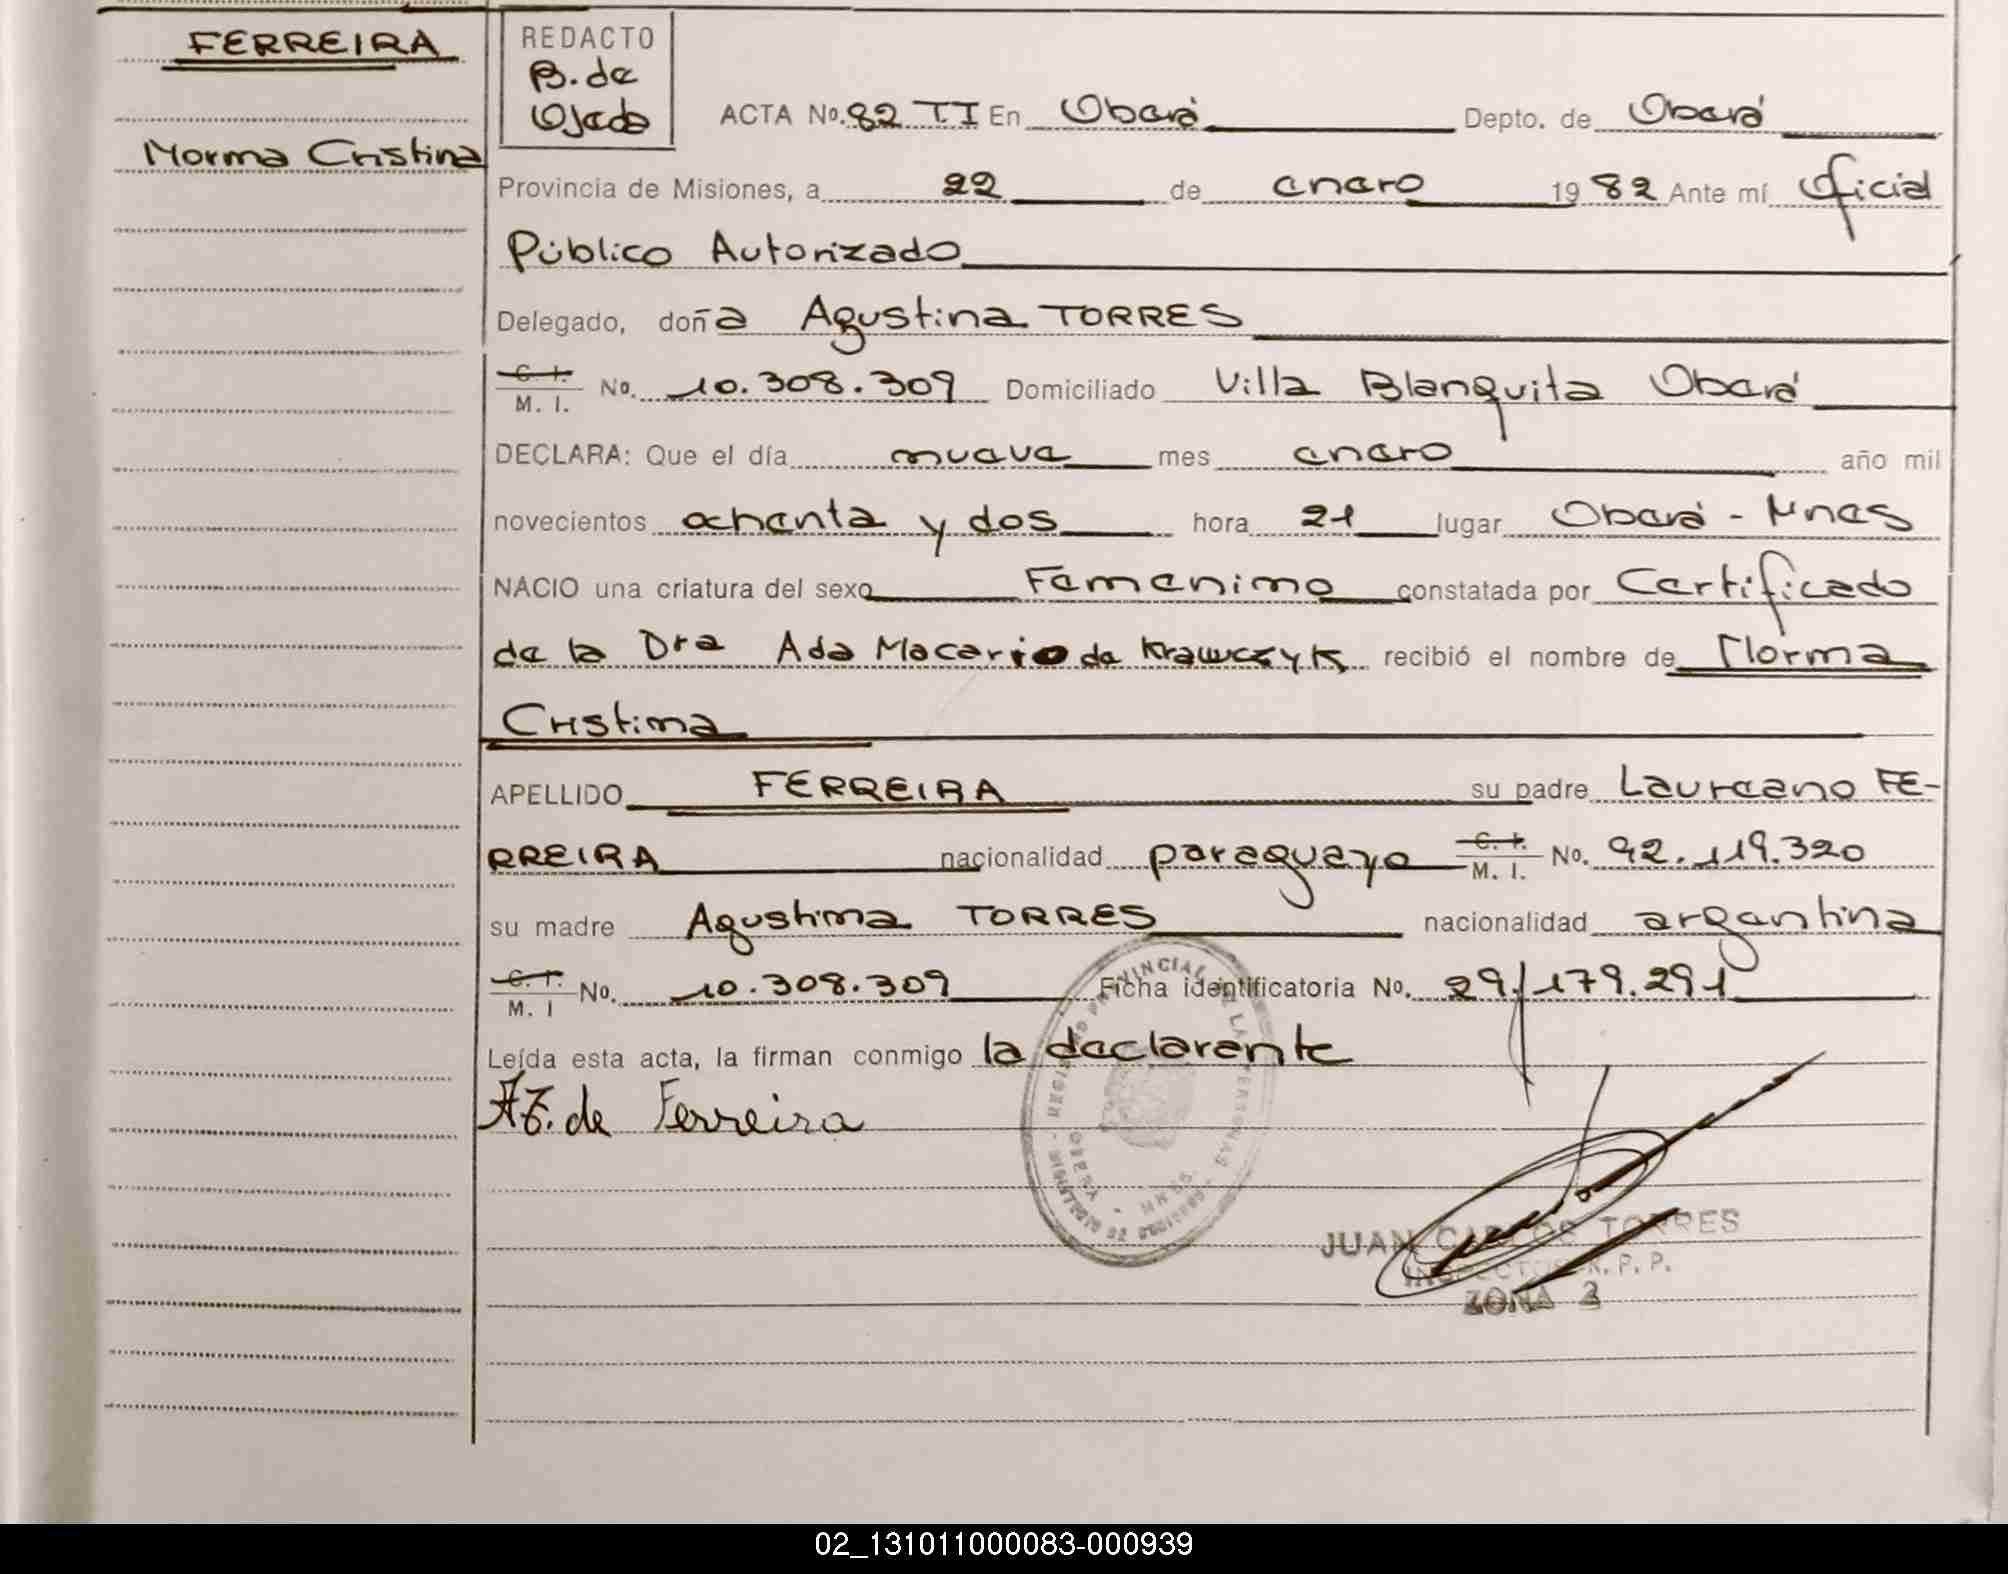 FERREIRA
Norma Cristina
REDACTO
B. de
Ojeda
ACTA No. 82 TI En Oberá Depto. de Oberá
Provincia de Misiones, a 22 de enero 1982 Ante mí Oficial
Público Autorizado
Delegado, doña Agustina TORRES
C. I. M. I. No. 10.308.309 Domiciliado Villa Blanquita Oberá
DECLARA: Que el día nueve mes enero año mil
novecientos ochenta y dos hora 21 lugar Oberá - Mnes
NACIO una criatura del sexo Femenino constatada por Certificado
de la Dra Ada Macario de Krawczyk recibió el nombre de Norma
Cristina
APELLIDO FERREIRA su padre Laureano FE-
RREIRA nacionalidad paraguayo C. I. M. I. No. 92.119.320
su madre Agustina TORRES nacionalidad argentina
C. I. M. I No. 10.308.309 Ficha identificatoria No. 29/179.291
Leída esta acta, la firman conmigo la declarante
AT. de Ferreira
REGISTRO PROVINCIAL DE LAS PERSONAS - MINISTERIO DE GOBIERNO
OBERA - MNES.
JUAN CARLOS TORRES
INSPECTOR R. P. P.
ZONA 2
02_131011000083-000939